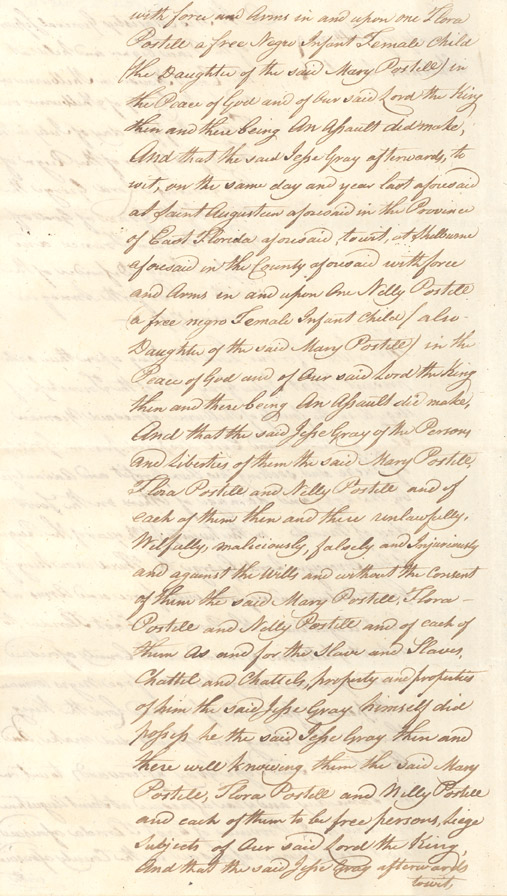 with force and Arms in and upon one Flora
Postell a free Negro Infant Female Child
(the Daughter of the said Mary Postell) in
the Peace of God and of Our said Lord the King
then and there being An Assault did make,
And that the said Jesse Gray afterwards, to
wit, on the same day and year last aforesaid
at Saint Augusteen aforesaid in the Province
of East Florida aforesaid, towit, at Shelburne
aforesaid in the County aforesaid with force
and Arms in and upon One Nelly Postell
(a free negro Female Infant Child / also
Daughter of the said Mary Postell) in the
Peace of God and of Our said Lord the King
then and there being An Assault did make,
And that the said Jesse Gray of the Persons
and Liberties of them the said Mary Postell,
Flora Postell and Nelly Postell and of
each of them then and there unlawfully,
Wilfully, maliciously, falsely and Injuriously
and against the Wills and without the Consent
of them the said Mary Postell, Flora
Postell and Nelly Postell and of each of
them As and for the Slave and Slaves,
Chattel and Chattels, property and properties
of him the said Jesse Gray himself did
possess he the said Jesse Gray then and
there will knowing them the said Mary
Postell, Flora Postell and Nelly Postell
and each of them to be free persons, Liege
Subjects of Our said Lord the King,
And that the said Jesse Gray afterwards
towit,